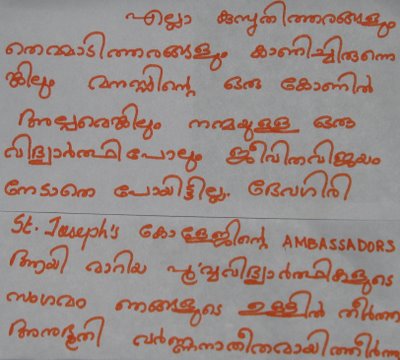 എല്ലാ കുസൃതിത്തരങ്ങളും
തെമ്മാടിത്തരങ്ങളും കാണിച്ചിരുന്നെ
ങ്കിലും മനസ്സിന്റെ ഒരു കോണിൽ
അല്പമെങ്കിലും നന്മയുള്ള ഒരു
വിദ്യാർത്ഥിപോലും ജീവിതവിജയം
നേടാതെ പോയിട്ടില്ല. ദേവഗിരി
St. Joseph's കോളേജിന്റെ AMBASSADORS
ആയി മാറിയ പൂർവ്വവിദ്യാർത്ഥികളുടെ
സംഗമം ഞങ്ങളുടെ ഉള്ളിൽ തീർത്ത
അനുഭൂതി വർണ്ണനാതീതമായിത്തീർന്ന